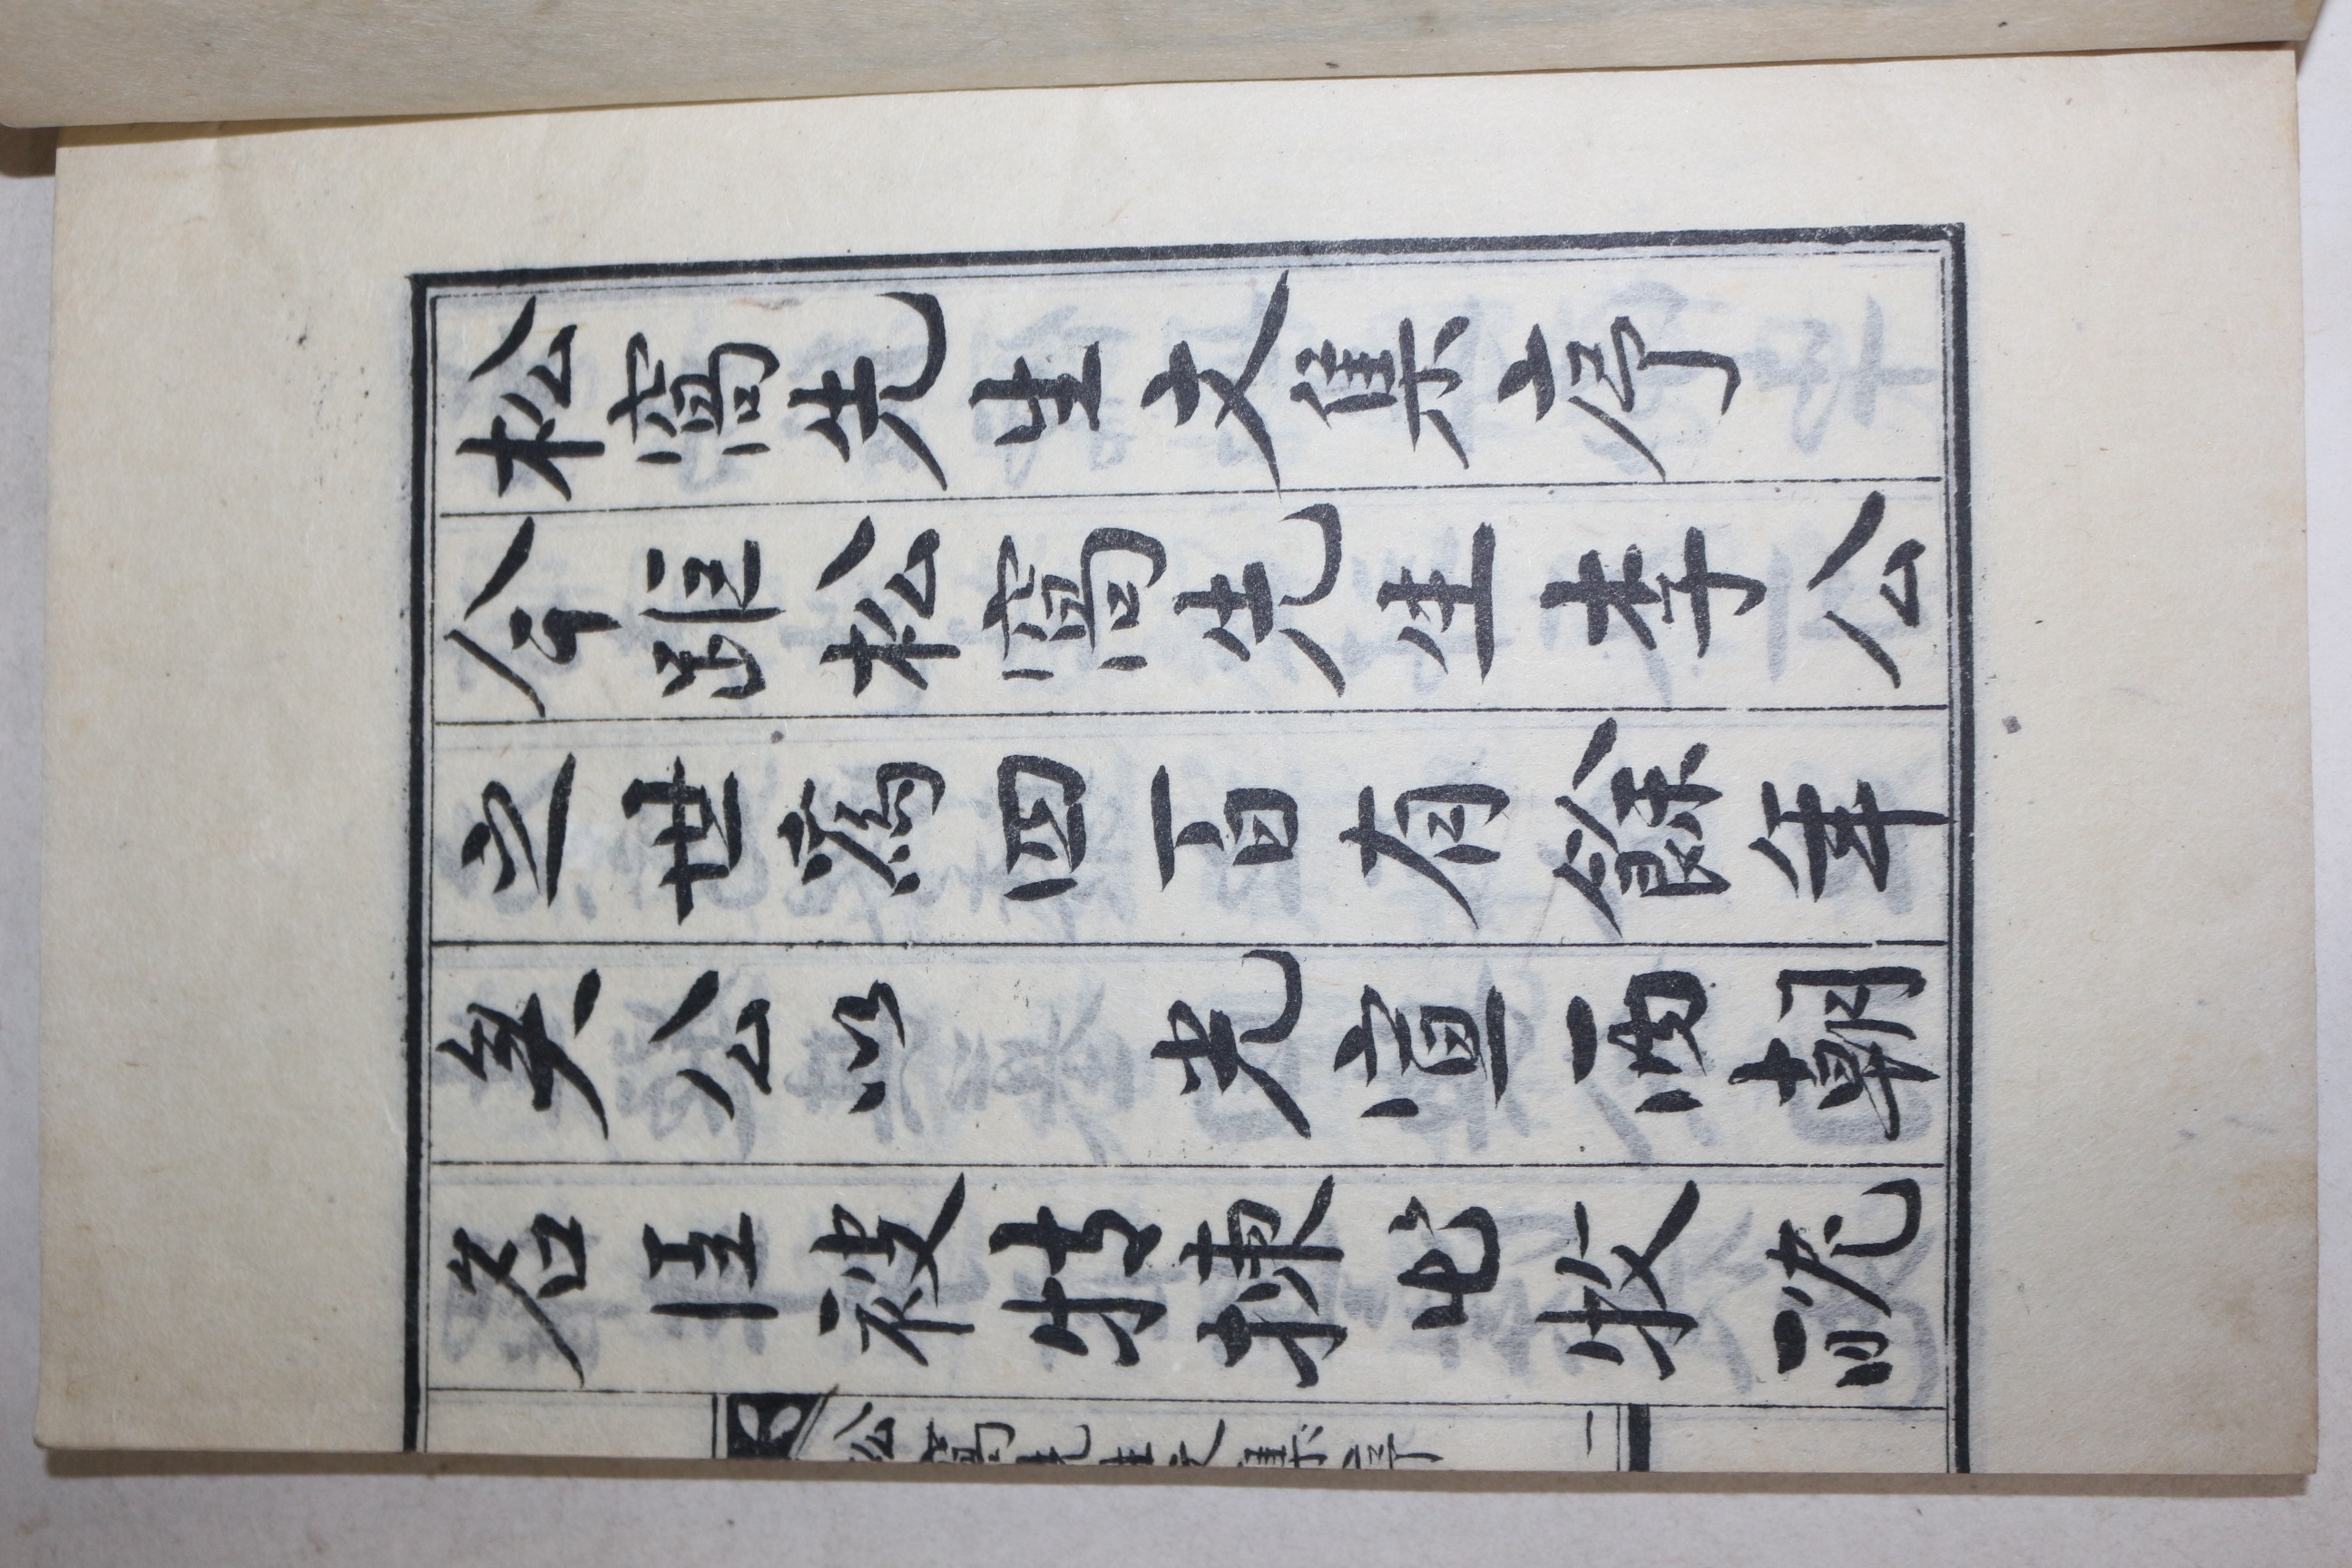 松窩先生文集序
今距松窩先生李公
之世爲四百有餘年
矣公以 先宣兩朝
名臣被特揀出牧耽
松窩先生文集序 一